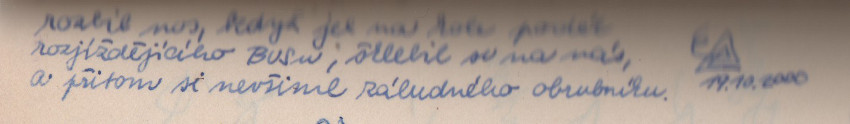 rozbil nos, když jel na kole podél
rozjíždějícího BUSU, šklebil se na nás,
a přitom si nevšiml záludného obrubníku.
19.10.2000